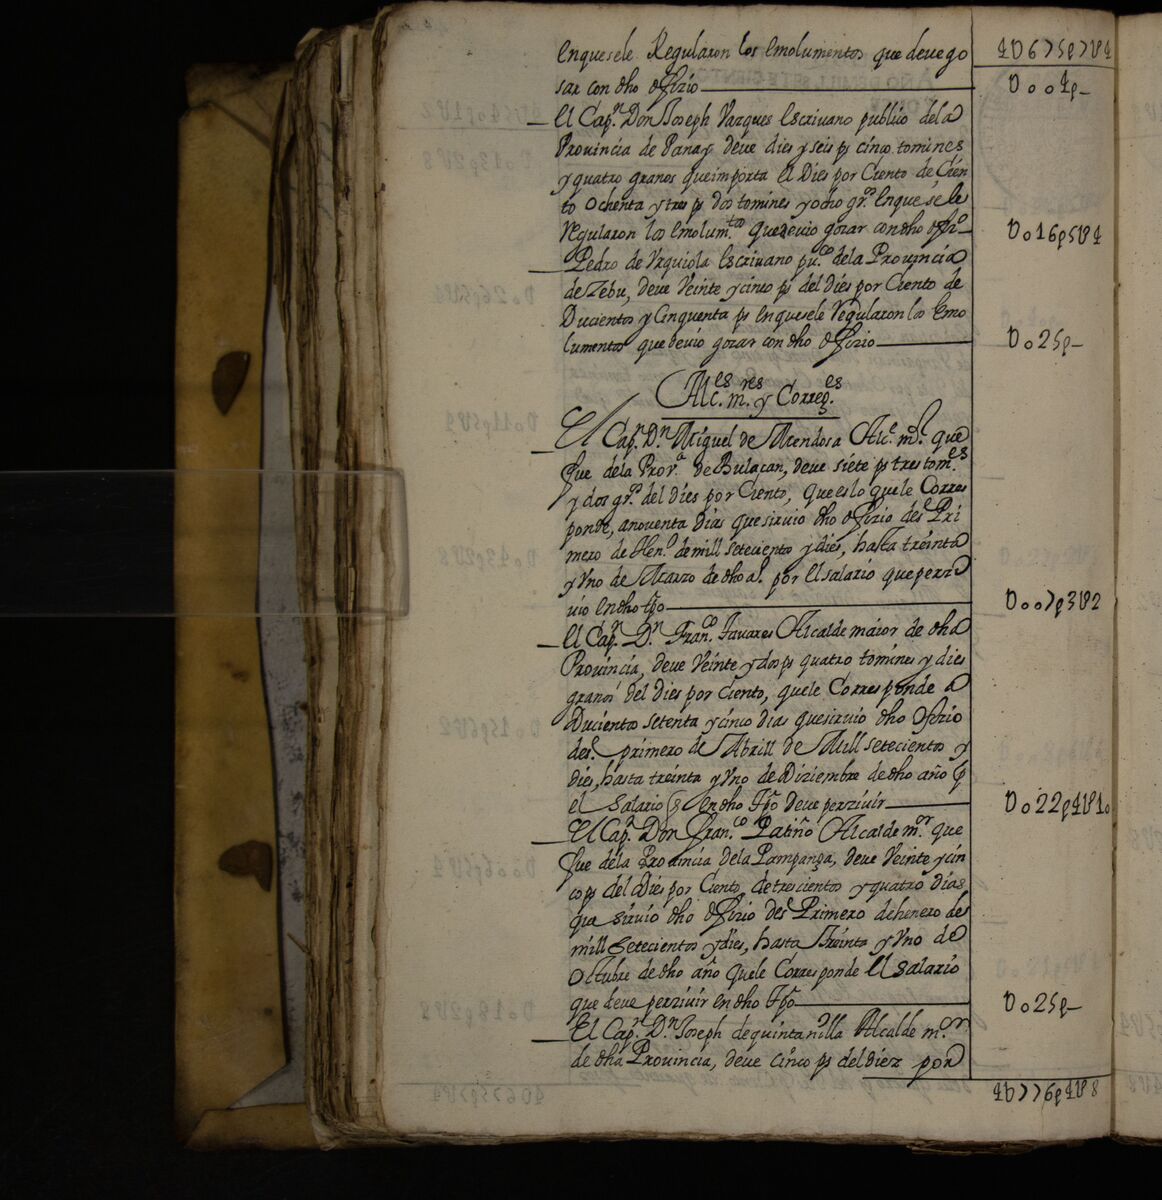 En que se le Regularon los Emolumentos que deve go
4U675p7U4
sar con dho ofizio
U004p
El Cap.n Don Joseph Vazques Escrivano publico de la
Provincia de Panay deve dies y seis ps cinco tomines
y quatro granos que importa El Dies por Ciento de Cien
to ochenta y tres ps dos tomines y ocho gr.s En que se le
Regularon los Emolum.tos que devio gozar con dho ofiz.o
U016p5U4
Pedro de Urquiola Escrivano pu.co de la Provincia
de Zebu, deve Veinte y cinco ps del dies por Ciento de
Ducientos y Cinquenta ps En que se le Regularon los Emo
lumentos que devio gozar con dho ofizio
U025p
Alc.es m.res y Correg.es
El Cap.n D.n Miguel de Mendosa Alc.e m.r que
fue de la Prov.a de Bulacan, deve siete ps tres tom.es
y dos gr.s del dies por Ciento, que es lo que le Corres
ponde, a noventa dias que sirvio dho ofizio des.e Pri
mero de Hen.o de mill setecientos y dies, hasta treinta
y Uno de Marzo de dho a.o por El salario que perzi
vio En dho tpo
U007p3U2
El Cap.n D.n Fran.co Tavares Alcalde maior de dha
Provincia, deve Veinte y dos ps quatro tomines y dies
granos del dies por Ciento, que le Corresponde a
Ducientos setenta y cinco dias que sirvio dho Ofizio
des.e primero de Abrill de Mill setecientos y
dies, hasta treinta y Uno de Diziembre de dho año p
el Salario q En dho tpo deve perzivir
U022p4U10
El Cap.n Don Fran.co Patiño Alcalde m.or que
fue de la Provincia de la Pampanga, deve Veinte y cin
co ps del Dies por Ciento, de trescientos y quatro dias
que sirvio dho ofizio des.e Primero de henero de
mill Setecientos y dies, hasta treinta y Uno de
Octubre de dho año que le Corresponde El Salario
que deve perzivir en dho tpo
U025p
El Cap.n D.n Joseph de quintanilla Alcalde m.or
de dha Provincia, deve cinco ps del diez por
4U776p4U8